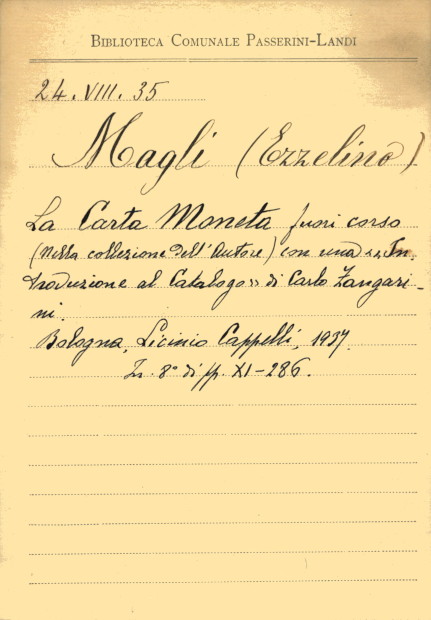 BIBLIOTECA COMUNALE PASSERINI-LANDI
24. VIII. 35
Magli (Ezzelino)
La Carta Moneta fuori corso
(nella collezione dell'Autore) con una «In
troduzione al Catalogo» di Carlo Zangari-
ni.
Bologna, Licinio Cappelli, 1937.
In. 8° di pp. XI-286.